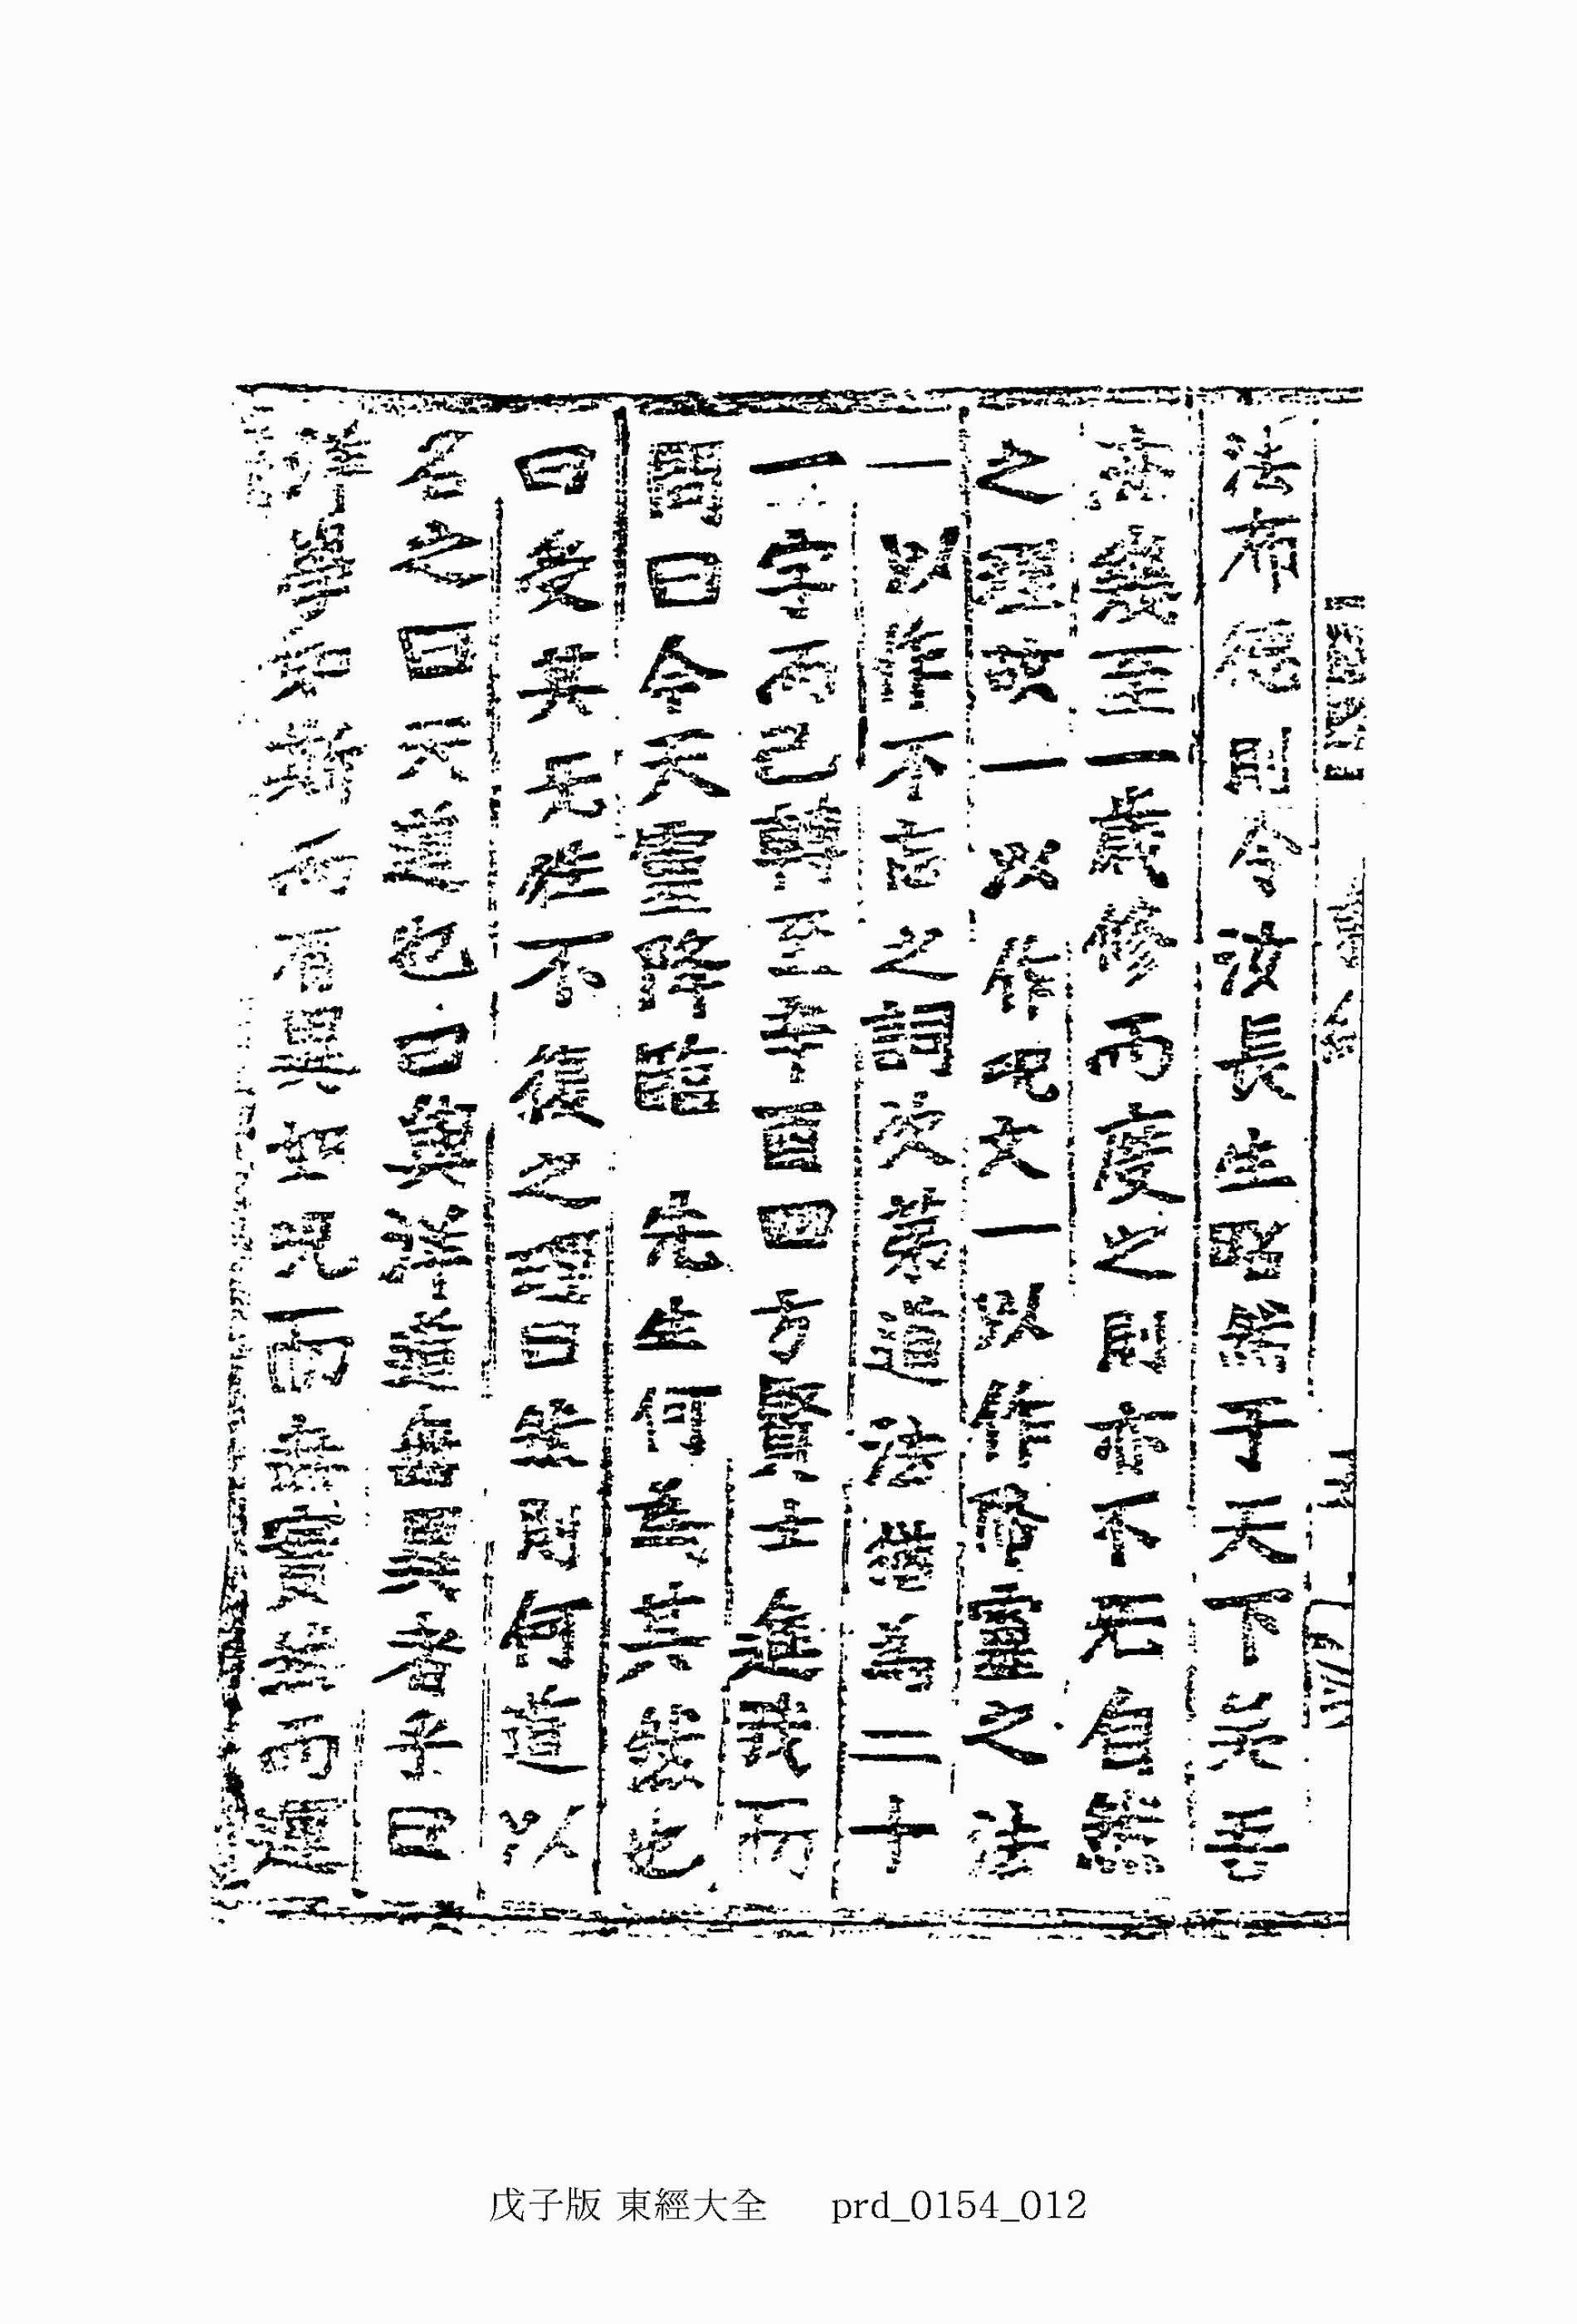 法布德則令汝長生昭然于天下矣吾
亦幾至一歲修而度之則亦不无自然
之理故一以作呪文一以作降靈之法
一以作不忘之詞次第道法猶爲二十
一字而已轉至辛酉四方賢士進我而
問曰今天靈降臨　先生何爲其然也
曰受其无往不復之理曰然則何道以
名之曰天道也曰與洋道無異者乎曰
洋學如斯而有異如呪而無實然而運
戊子版 東經大全 prd_0154_012